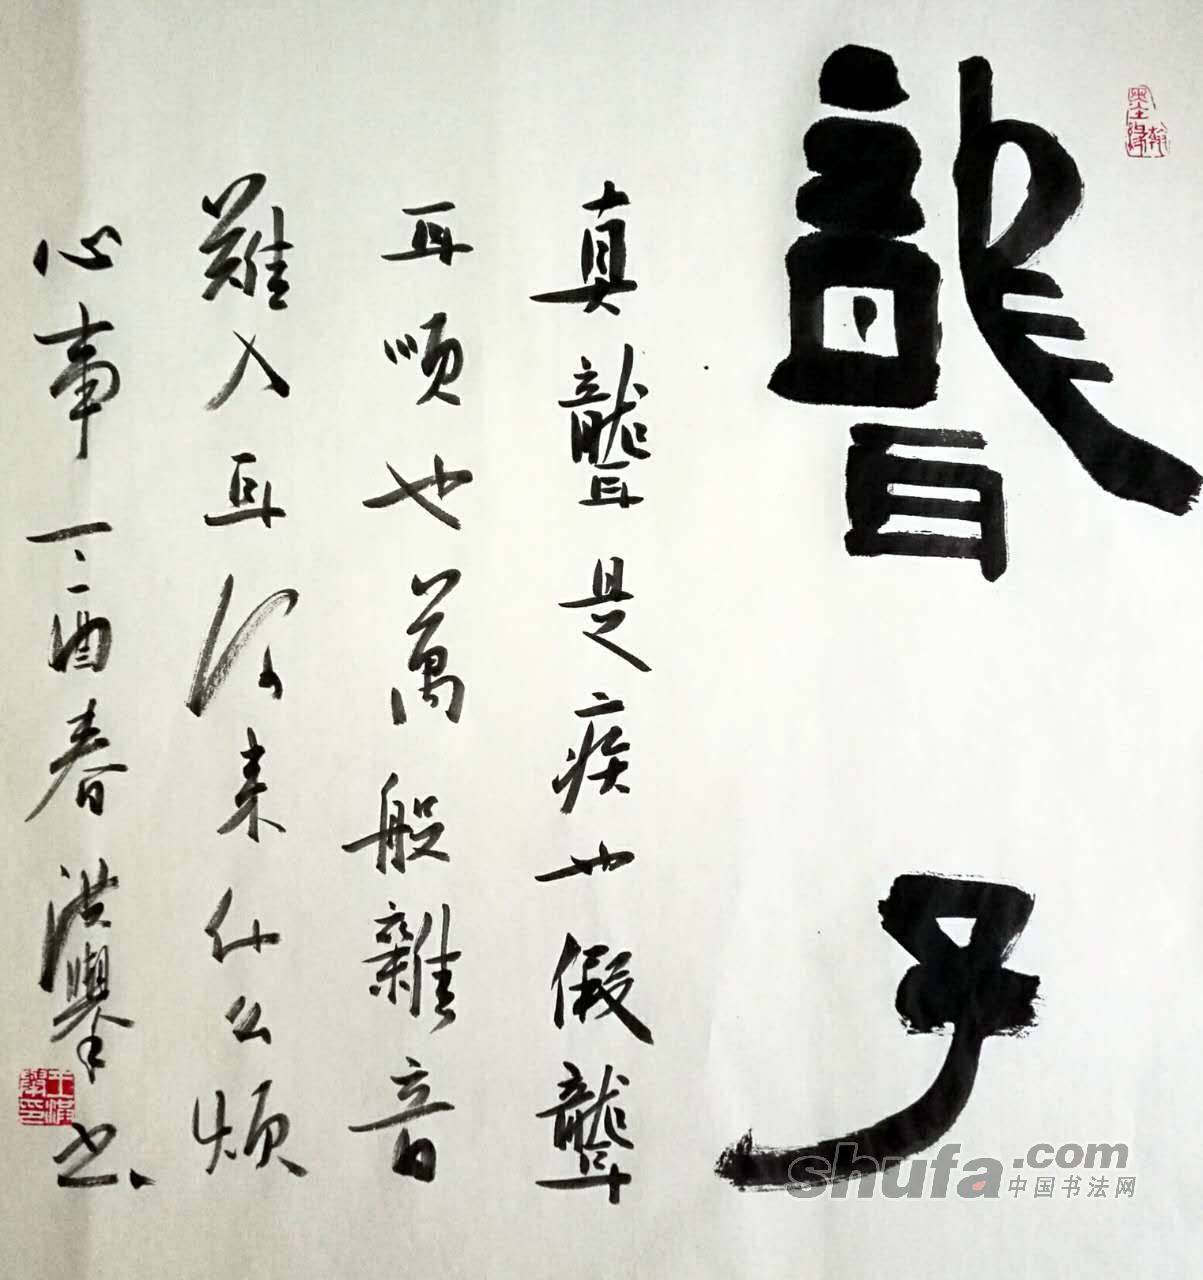 聾子
真聾是疾也假聾
耳顺也萬般雜音
難入耳何来什么烦
心事丁酉春洪舉书
王洪舉印
shufa.com
中国书法网